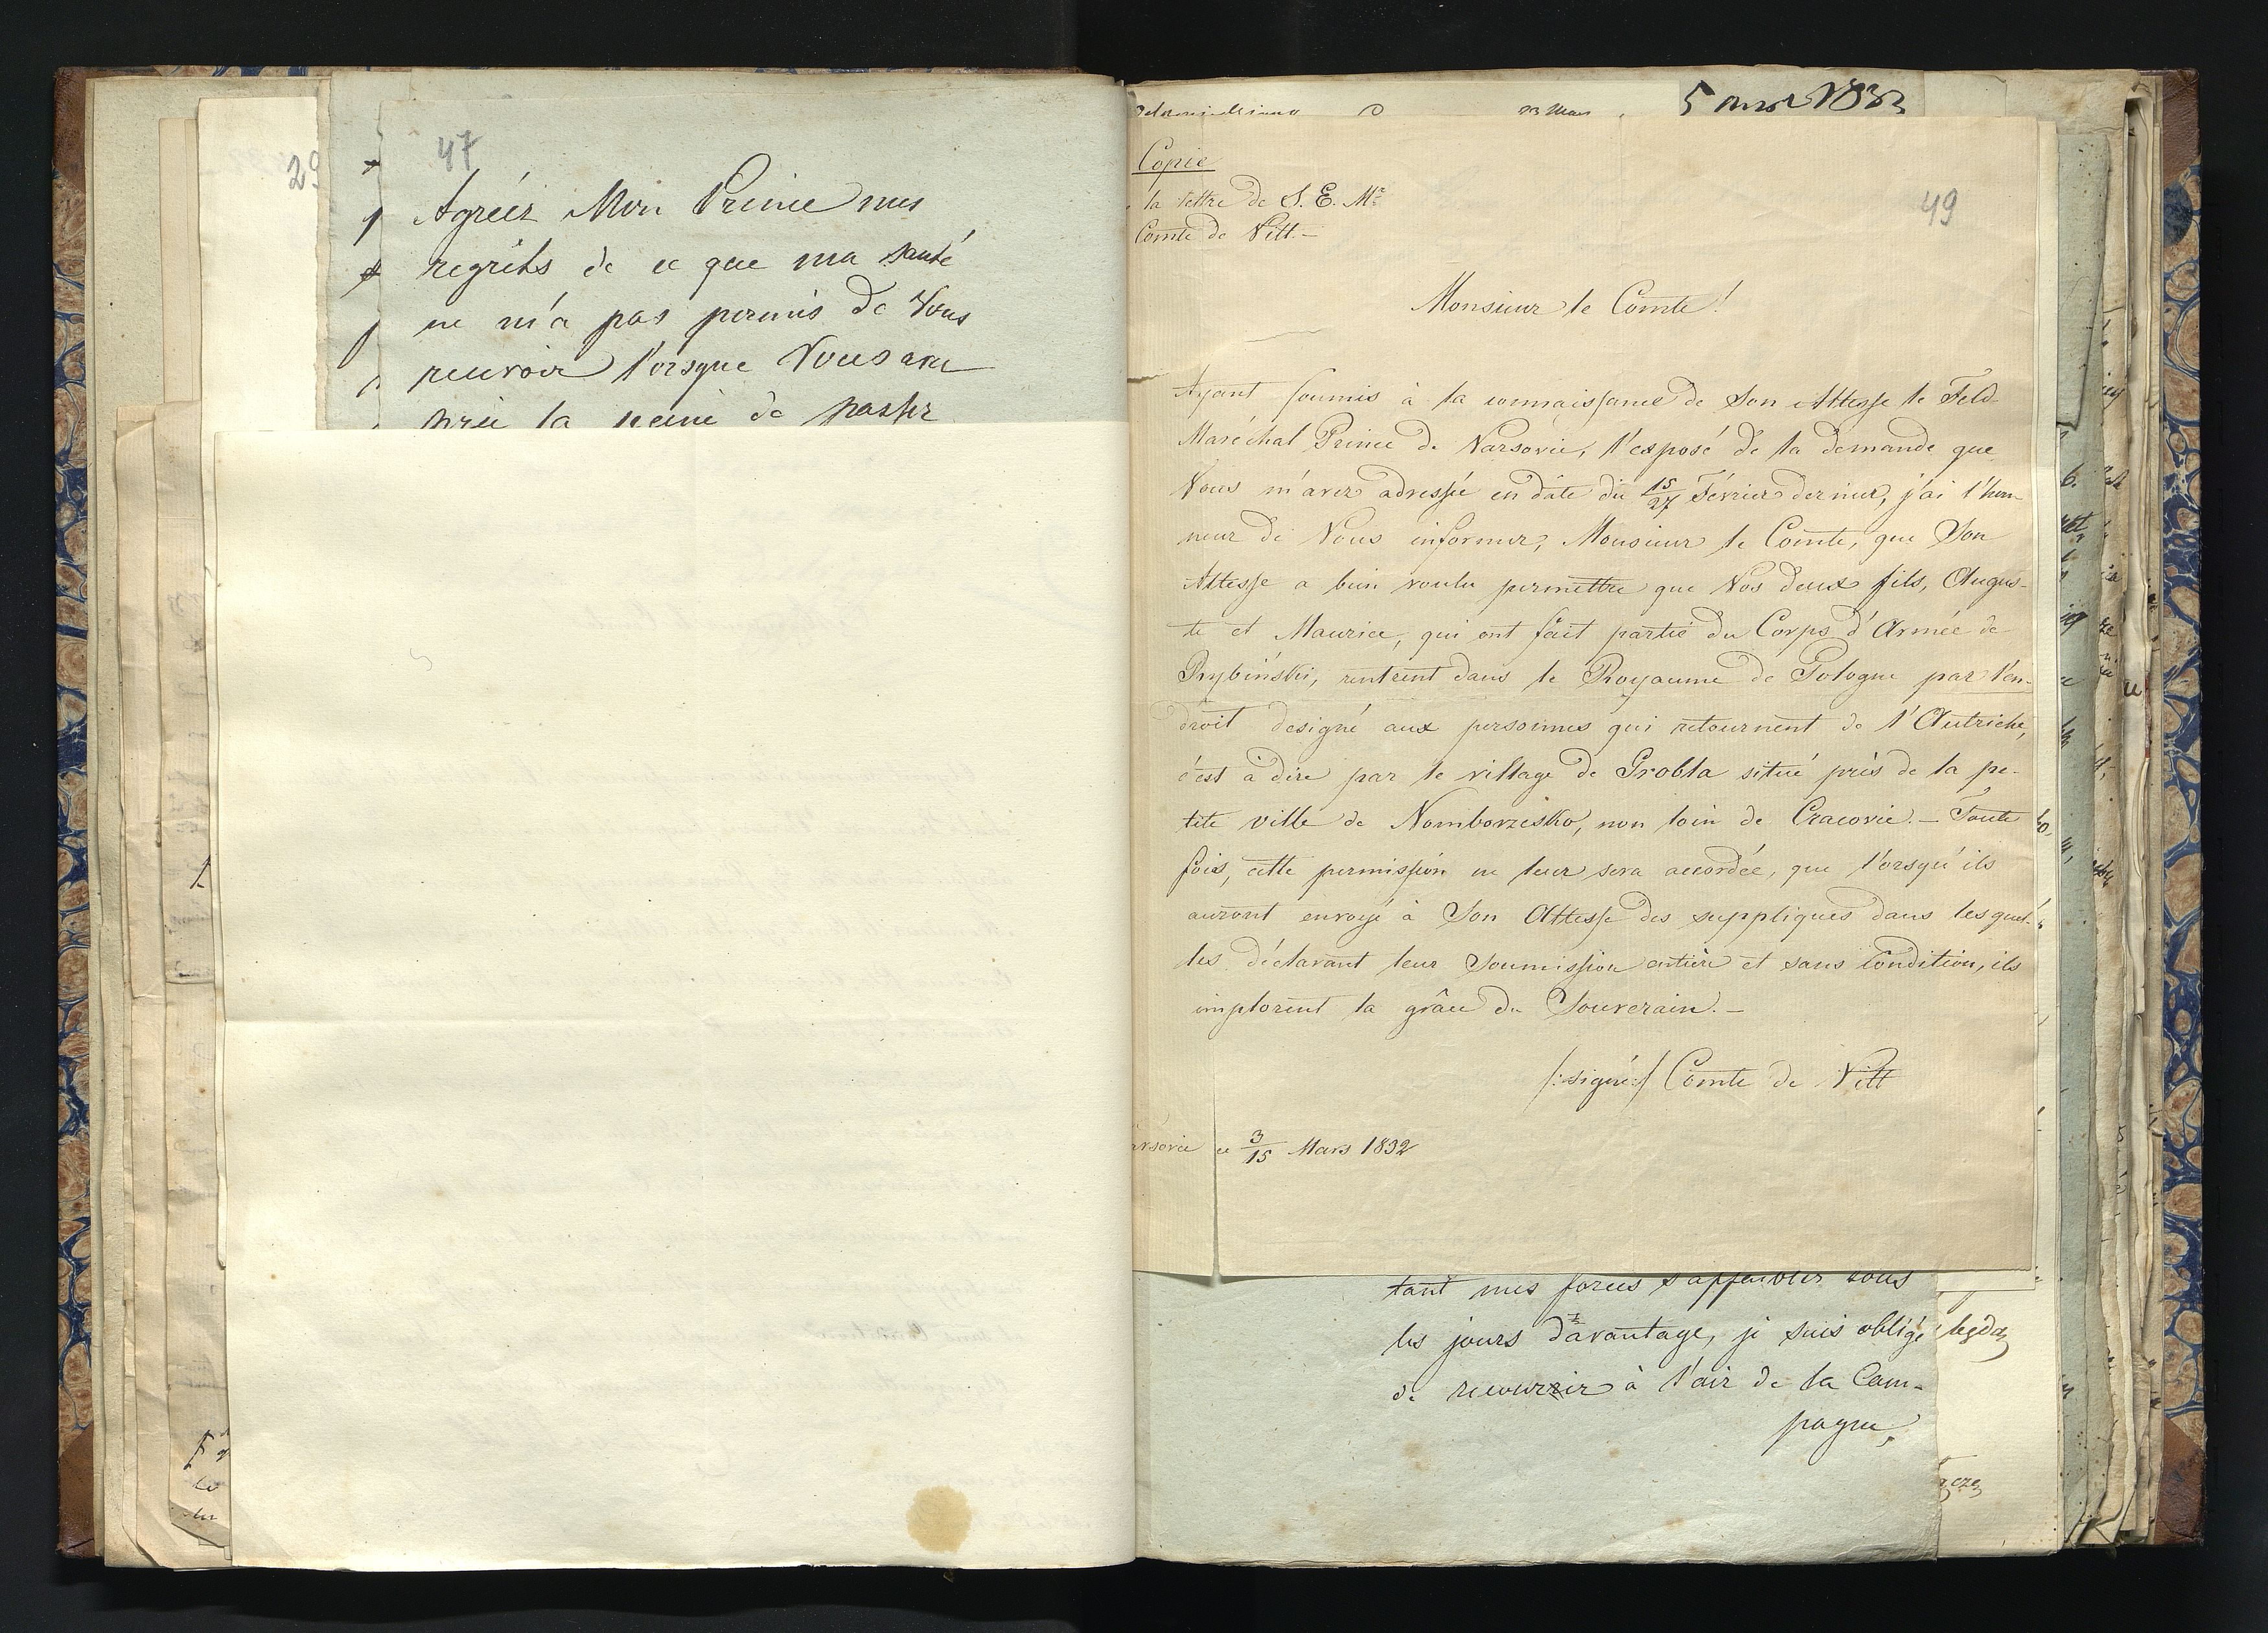 29
47
Agréés Mon Prince mes
regrêts de ce que ma santé
ne m'a pas permis de Vous
recevoir l'orsque Vous avez
priè la peine de passer
23 Mars
5 mars 1832
Copie
la lettre de S. E. Mr
Comte de Vitt.—
49
Monsieur le Comte!
Ayant soumis à la connaissance de Son Altesse le Feld-
Maréchal Prince de Varsovie, l'exposé de la demande que
Vous m'avez adressée en dâte du 15/27 Février dernier, j'ai l'hon-
neur de Vous informer, Monsieur le Comte, que Son
Altesse a bien voulu permettre que Vos deux fils, Augus-
te et Maurice, qui ont fait partie du Corps d'Armée de
Rybiński, rentrent dans le Royaume de Pologne par l'en-
droit designé aux personnes qui retournent de l'Autriche,
c'est à dire par le village de Grobla situé près de la pe-
tite ville de Nomborzesko, non loin de Cracovie.— Toute
fois, cette permission ne leur sera accordée, que l'orsqu'ils
auront envoyé à Son Altesse des suppliques dans lesquel-
les déclarant leur soumission entière et sans condition, ils
implorent la grâce du Souverain.—
/:signé:/ Comte de Vitt
arsovie ce 3/15 Mars 1832
tant mes forces s'affaiblir tous
les jours davantage, je suis obligé
de recourrir à l'air de la Cam-
pagne,